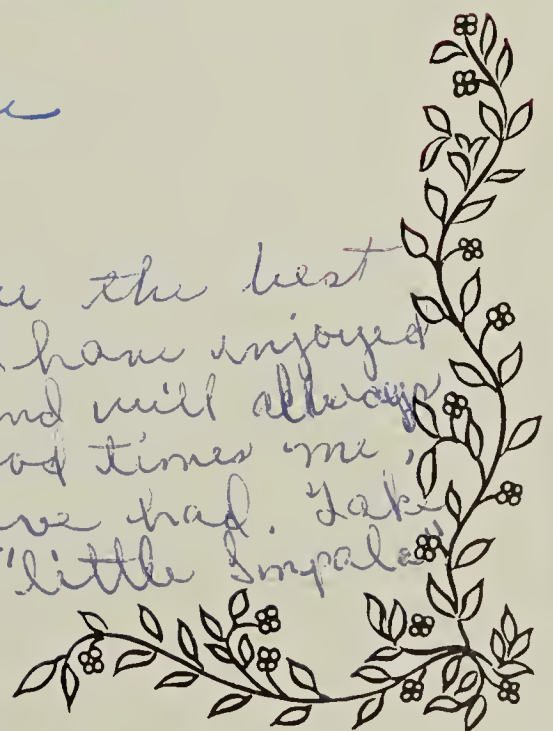 the best
have injoyed
nd will allways
od times me,
ve had. Take
"little Impala"